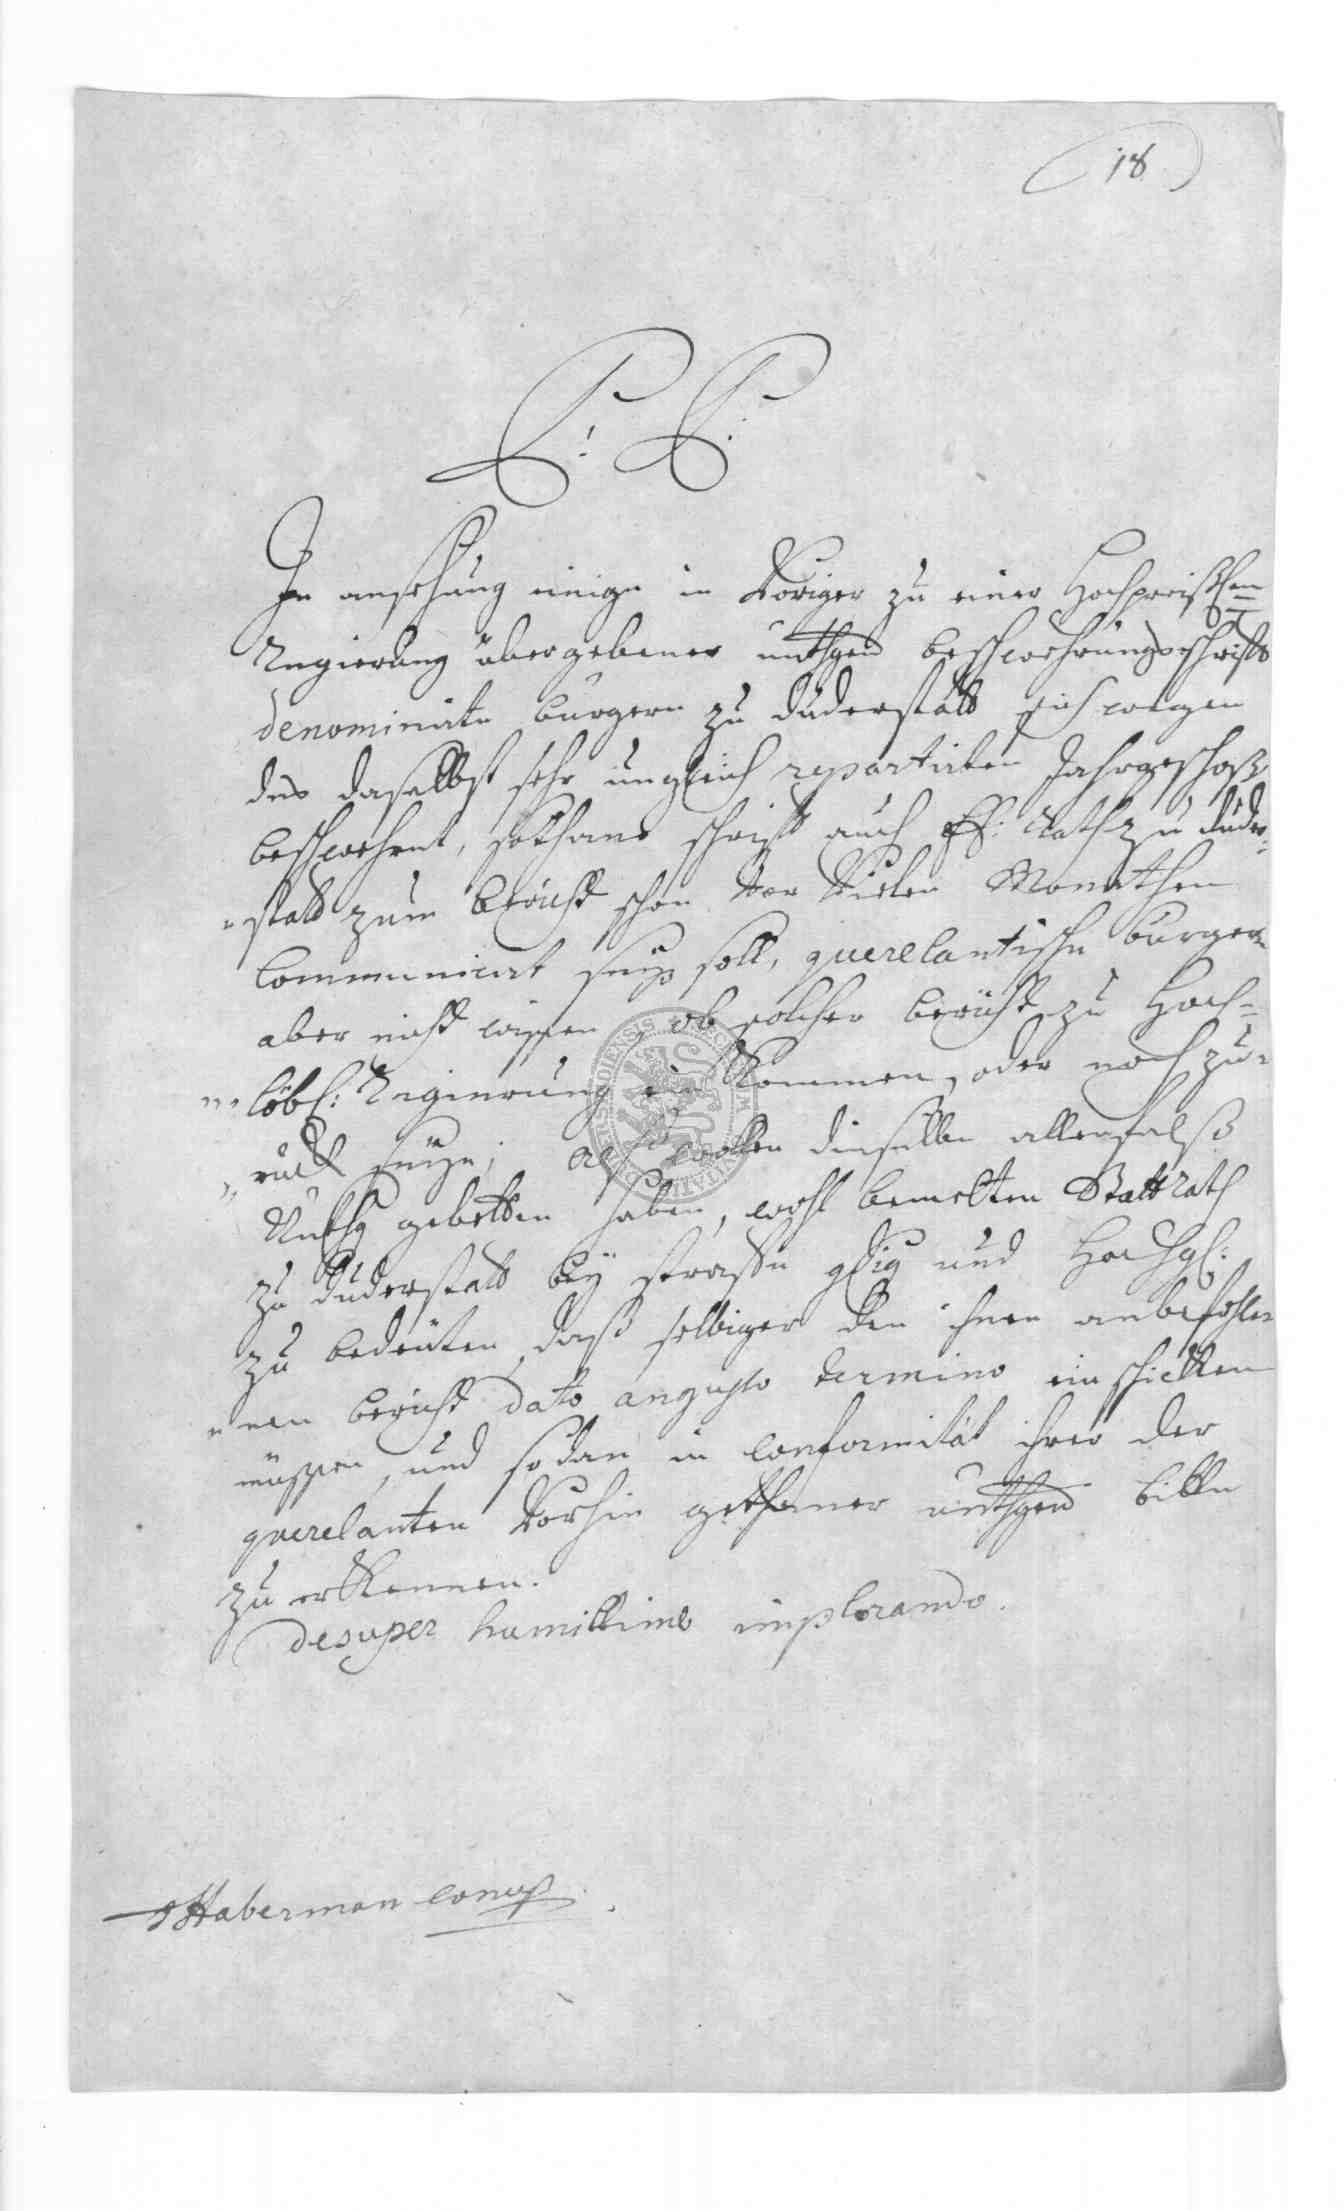 18
P. P.
In ansehung einige in Voriger zu einer Hochpreißl=
Regierung übergebener unthgen beschwehrungsschrifft
denominirte burgern zu duderstatt sich wegen
des daselbst sehr ungleich repartirten Jahrgeschoß
beschwehret, sothane schrifft auch Rath zu duder=
statt zum bericht schon Vor Vielen Monathen
communicirt seyn soll, querelantische burgere
aber nicht wissen, ob solcher bericht zu Hoch=
löbl: Regierung ein kommen, oder noch zu=
ruck seye; als wollen dieselbe allenfalß
Unthg gebetten haben, wohl bemelten Stattrath
zu duderstatt bey straffe gdig und Hochgl:
zu bedeuten, daß selbiger den ihnen anbefohle=
nen bericht dato angusto termino einschicken
müssen, und sodan in conformität ihrer der
querelanten Vorhin gethaner unthgen bitte
zu erkennen.
desuper humillime implorando.
Haberman